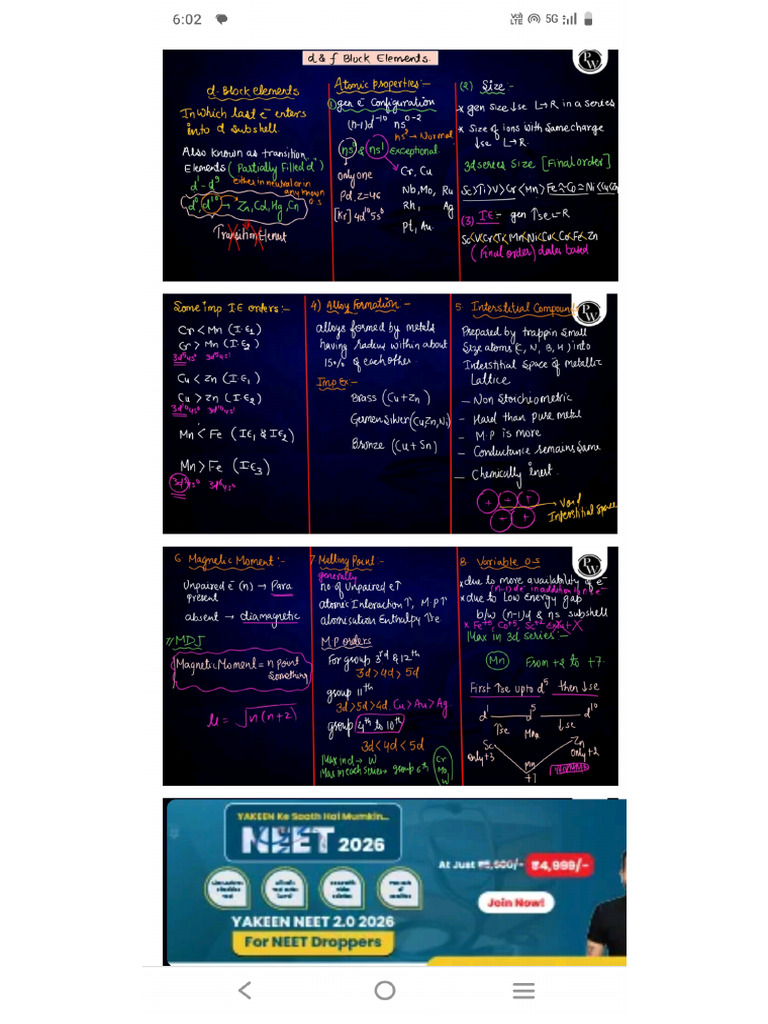 6:02
5G
d & f Block Elements.
PW
d-Block elements
In which last e⁻ enters
into d subshell.
Also known as transition
Elements (Partially Filled d)
d¹-d⁹ either in neutral or in
any known
O.S
d⁰, d¹⁰ → Zn, Cd, Hg, Cn
Transition Element
Atomic properties:-
① gen e⁻ Configuration
(n-1)d¹⁻¹⁰ ns⁰⁻²
ns² → Normal
ns⁰ & ns¹ Exceptional
only one
Pd, Z=46
[Kr] 4d¹⁰5s⁰
Cr, Cu
Nb, Mo, Ru
Rh, Ag
Pt, Au
(2) Size:-
* gen size ↓se L→R in a series
* Size of ions with same charge
↓se L→R.
3d series Size [Final order]
Sc>Ti>V>Cr<Mn>Fe≈Co≈Ni<Cu<Zn
(3) IE:- gen ↑se L-R
Sc<V<Cr<Ti<Mn<Ni<Cu<Co<Fe<Zn
(Final order) data based
Some imp IE orders:-
Cr < Mn (I·E₁)
Cr > Mn (I·E₂)
3d⁵4s⁰ 3d⁵4s¹
Cu < Zn (I·E₁)
Cu > Zn (I·E₂)
3d¹⁰4s⁰ 3d¹⁰4s¹
Mn < Fe (IE₁ & IE₂)
Mn > Fe (IE₃)
3d⁵4s⁰ 3d⁶4s⁰
4) Alloy Formation -
alloys formed by metals
having radius within about
15% of each other.
Imp Ex:-
Brass (Cu+Zn)
German Silver (Cu,Zn,Ni)
Bronze (Cu+Sn)
5. Interstitial Compound
PW
Prepared by trappin small
Size atoms (C, N, B, H) into
Interstitial Space of metallic
Lattice
- Non Stoichiometric
- Hard than pure metal
- M.P is more
- Conductance remains same
- Chemically inert.
→ Void
Interstitial Space
6 Magnetic Moment:-
Unpaired e⁻ (n) → Para
present
absent → diamagnetic
MDJ
Magnetic Moment = n point
something
μ = √n(n+2)
7 Melting Point:-
generally
no of unpaired e⁻↑
atomic Interaction↑, M.P↑
atomisation Enthalpy ↑se
M.P orders
For group 3rd & 12th
3d>4d>5d
group 11th
3d>5d>4d Cu>Au>Ag
group 4th to 10th
3d<4d<5d
Max in d → W
Max in each series → group 6th
Cr
Mo
W
8. Variable O.S
* due to more availability of e⁻
(n-1)d e⁻ in addition to ns e⁻
* due to Low Energy gap
b/w (n-1)d & ns subshell
Max in 3d series:-
Mn From +2 to +7.
First ↑se upto d⁵ then ↓se
d¹ — d⁵ — d¹⁰
↑se Max ↓se
Sc
only +3
Zn
only +2
Mn
+7
YAKEEN Ke Saath Hai Mumkin...
NEET 2026
At Just ₹5,500/- ₹4,999/-
Join Now!
YAKEEN NEET 2.0 2026
For NEET Droppers